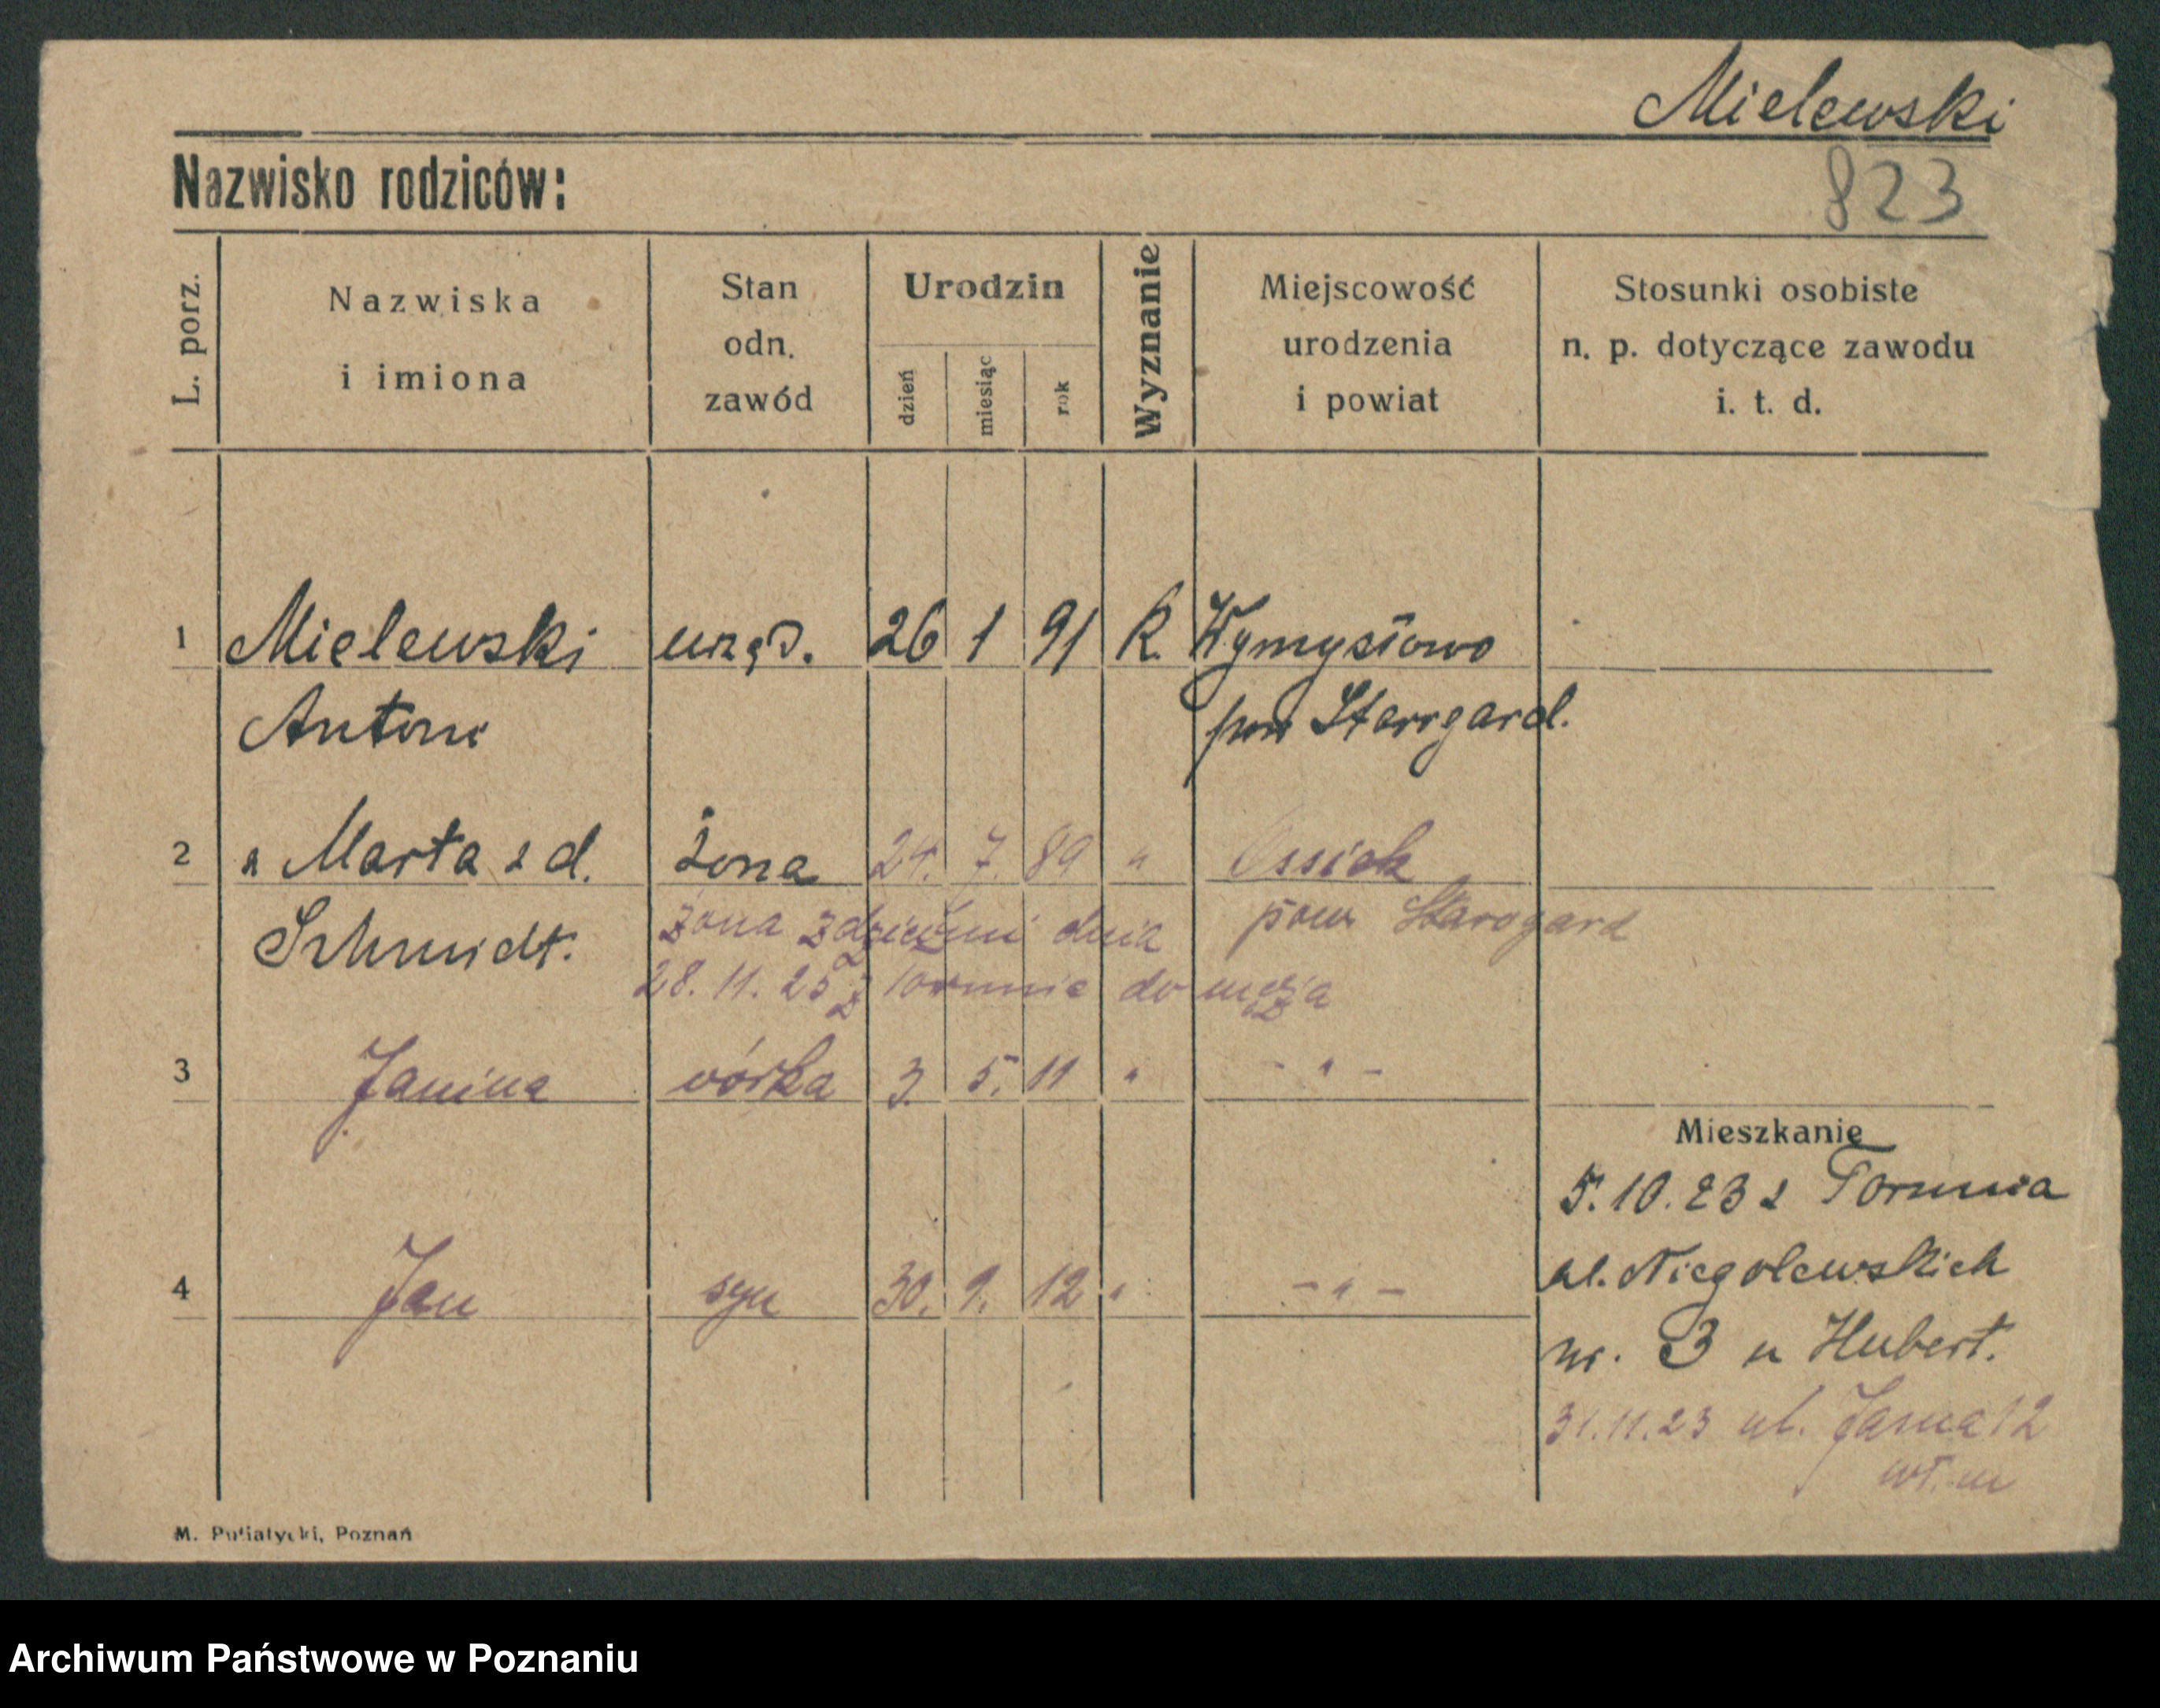 Mielewski
Nazwisko rodziców:
823
L. porz.
Nazwiska
i imiona
Stan
odn.
zawód
Urodzin
dzień
miesiąc
rok
Wyznanie
Miejscowość
urodzenia
i powiat
Stosunki osobiste
n. p. dotyczące zawodu
i. t. d.
1 Mielewski urzęd. 26 1 91 R. Wymysłowo
Antoni pow Starogard.
2 " Marta z d. żona 24. 7. 89 " Ossiek
Schmidt. żona z dziećmi dnia pow Starogard
28. 11. 25 z Torunia do męża
3 Janina córka 3. 5. 11 " - " -
Mieszkanie
5. 10. 23 z Torunia
4 Jan syn 30. 9. 12 " - " -
ul. Niegolewskich
nr. 3 u Hubert.
31. 11. 23 ul. Jasna 12
wł. m
M. Putiatycki, Poznań
Archiwum Państwowe w Poznaniu